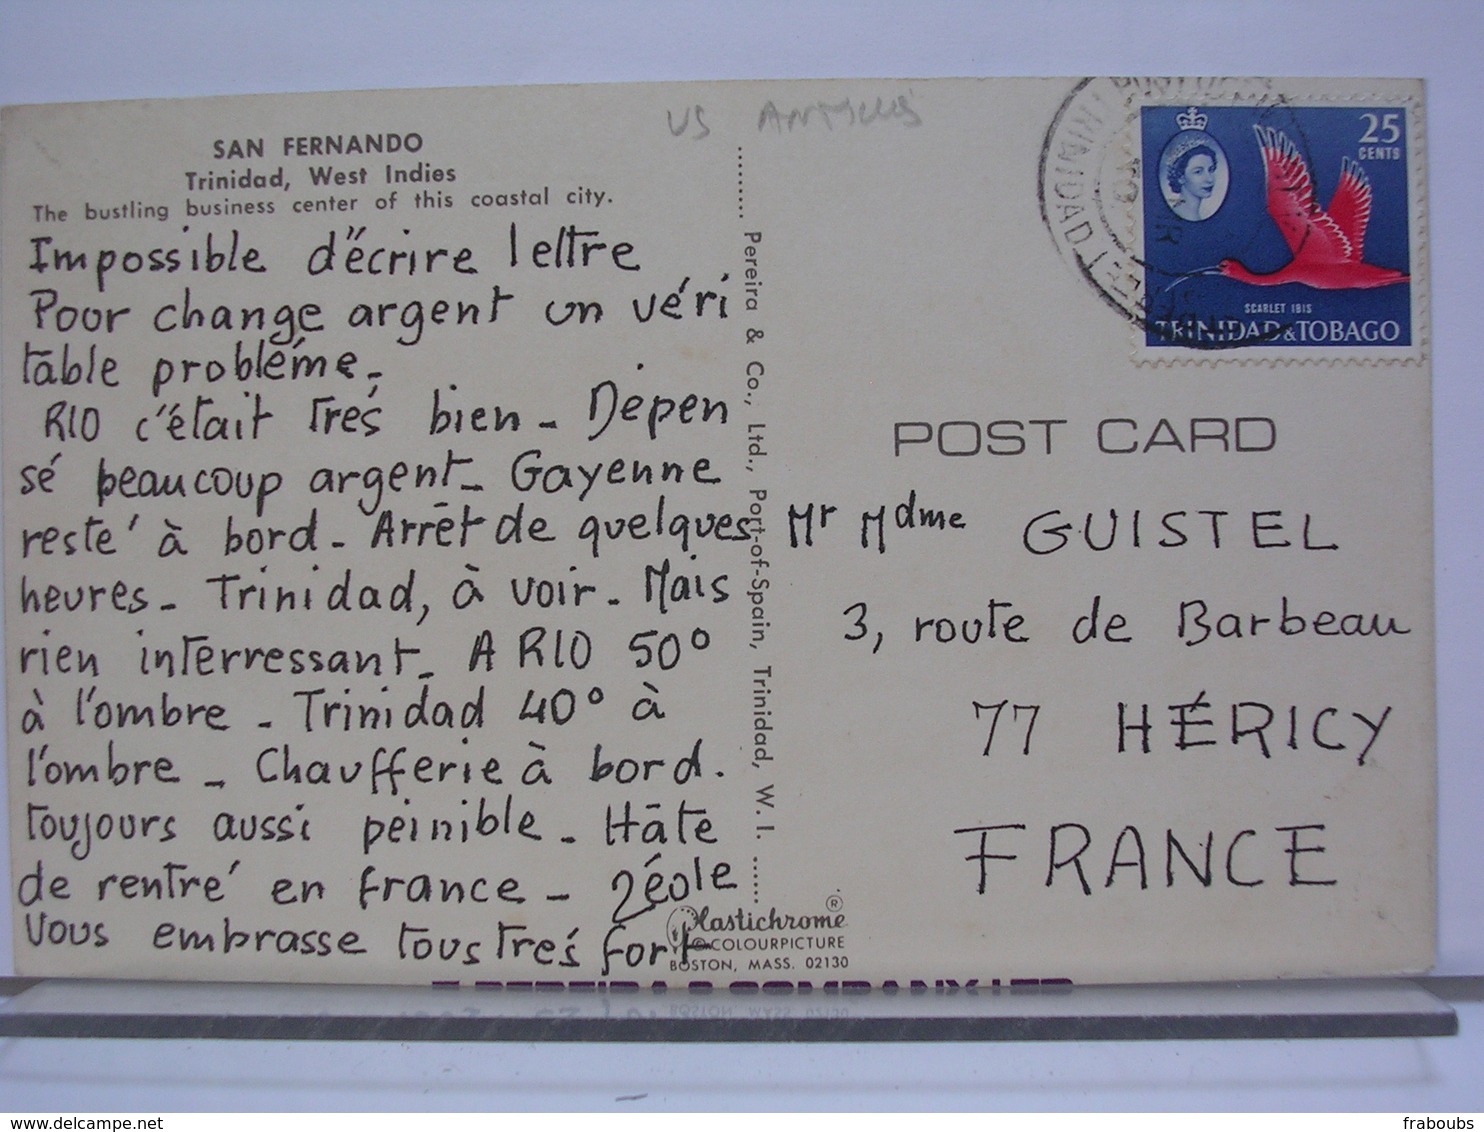 US
SAN FERNANDO
Trinidad, West Indies
The bustling business center of this coastal city.
Impossible d'écrire lettre
Pour change argent un véri
table probléme_
RIO c'était trés bien _ Dépen
sé beaucoup argent_ Gayenne
resté à bord_ Arrêt de quelques
heures_ Trinidad, à voir_ Mais
rien interressant_ A RIO 50°
à l'ombre _ Trinidad 40° à
l'ombre _ Chaufferie à bord.
toujours aussi peinible_ Hâte
de rentré en france _
Vous embrasse tous trés fort
Pereira & Co., Ltd., Port-of-Spain, Trinidad, W. I.
Plastichrome ®
COLOURPICTURE
BOSTON, MASS. 02130
25
CENTS
SCARLET IBIS
TRINIDAD & TOBAGO
TRINIDAD
POST CARD
Mr Mdme GUISTEL
3, route de Barbeau
77 HÉRICY
FRANCE
fraboubs